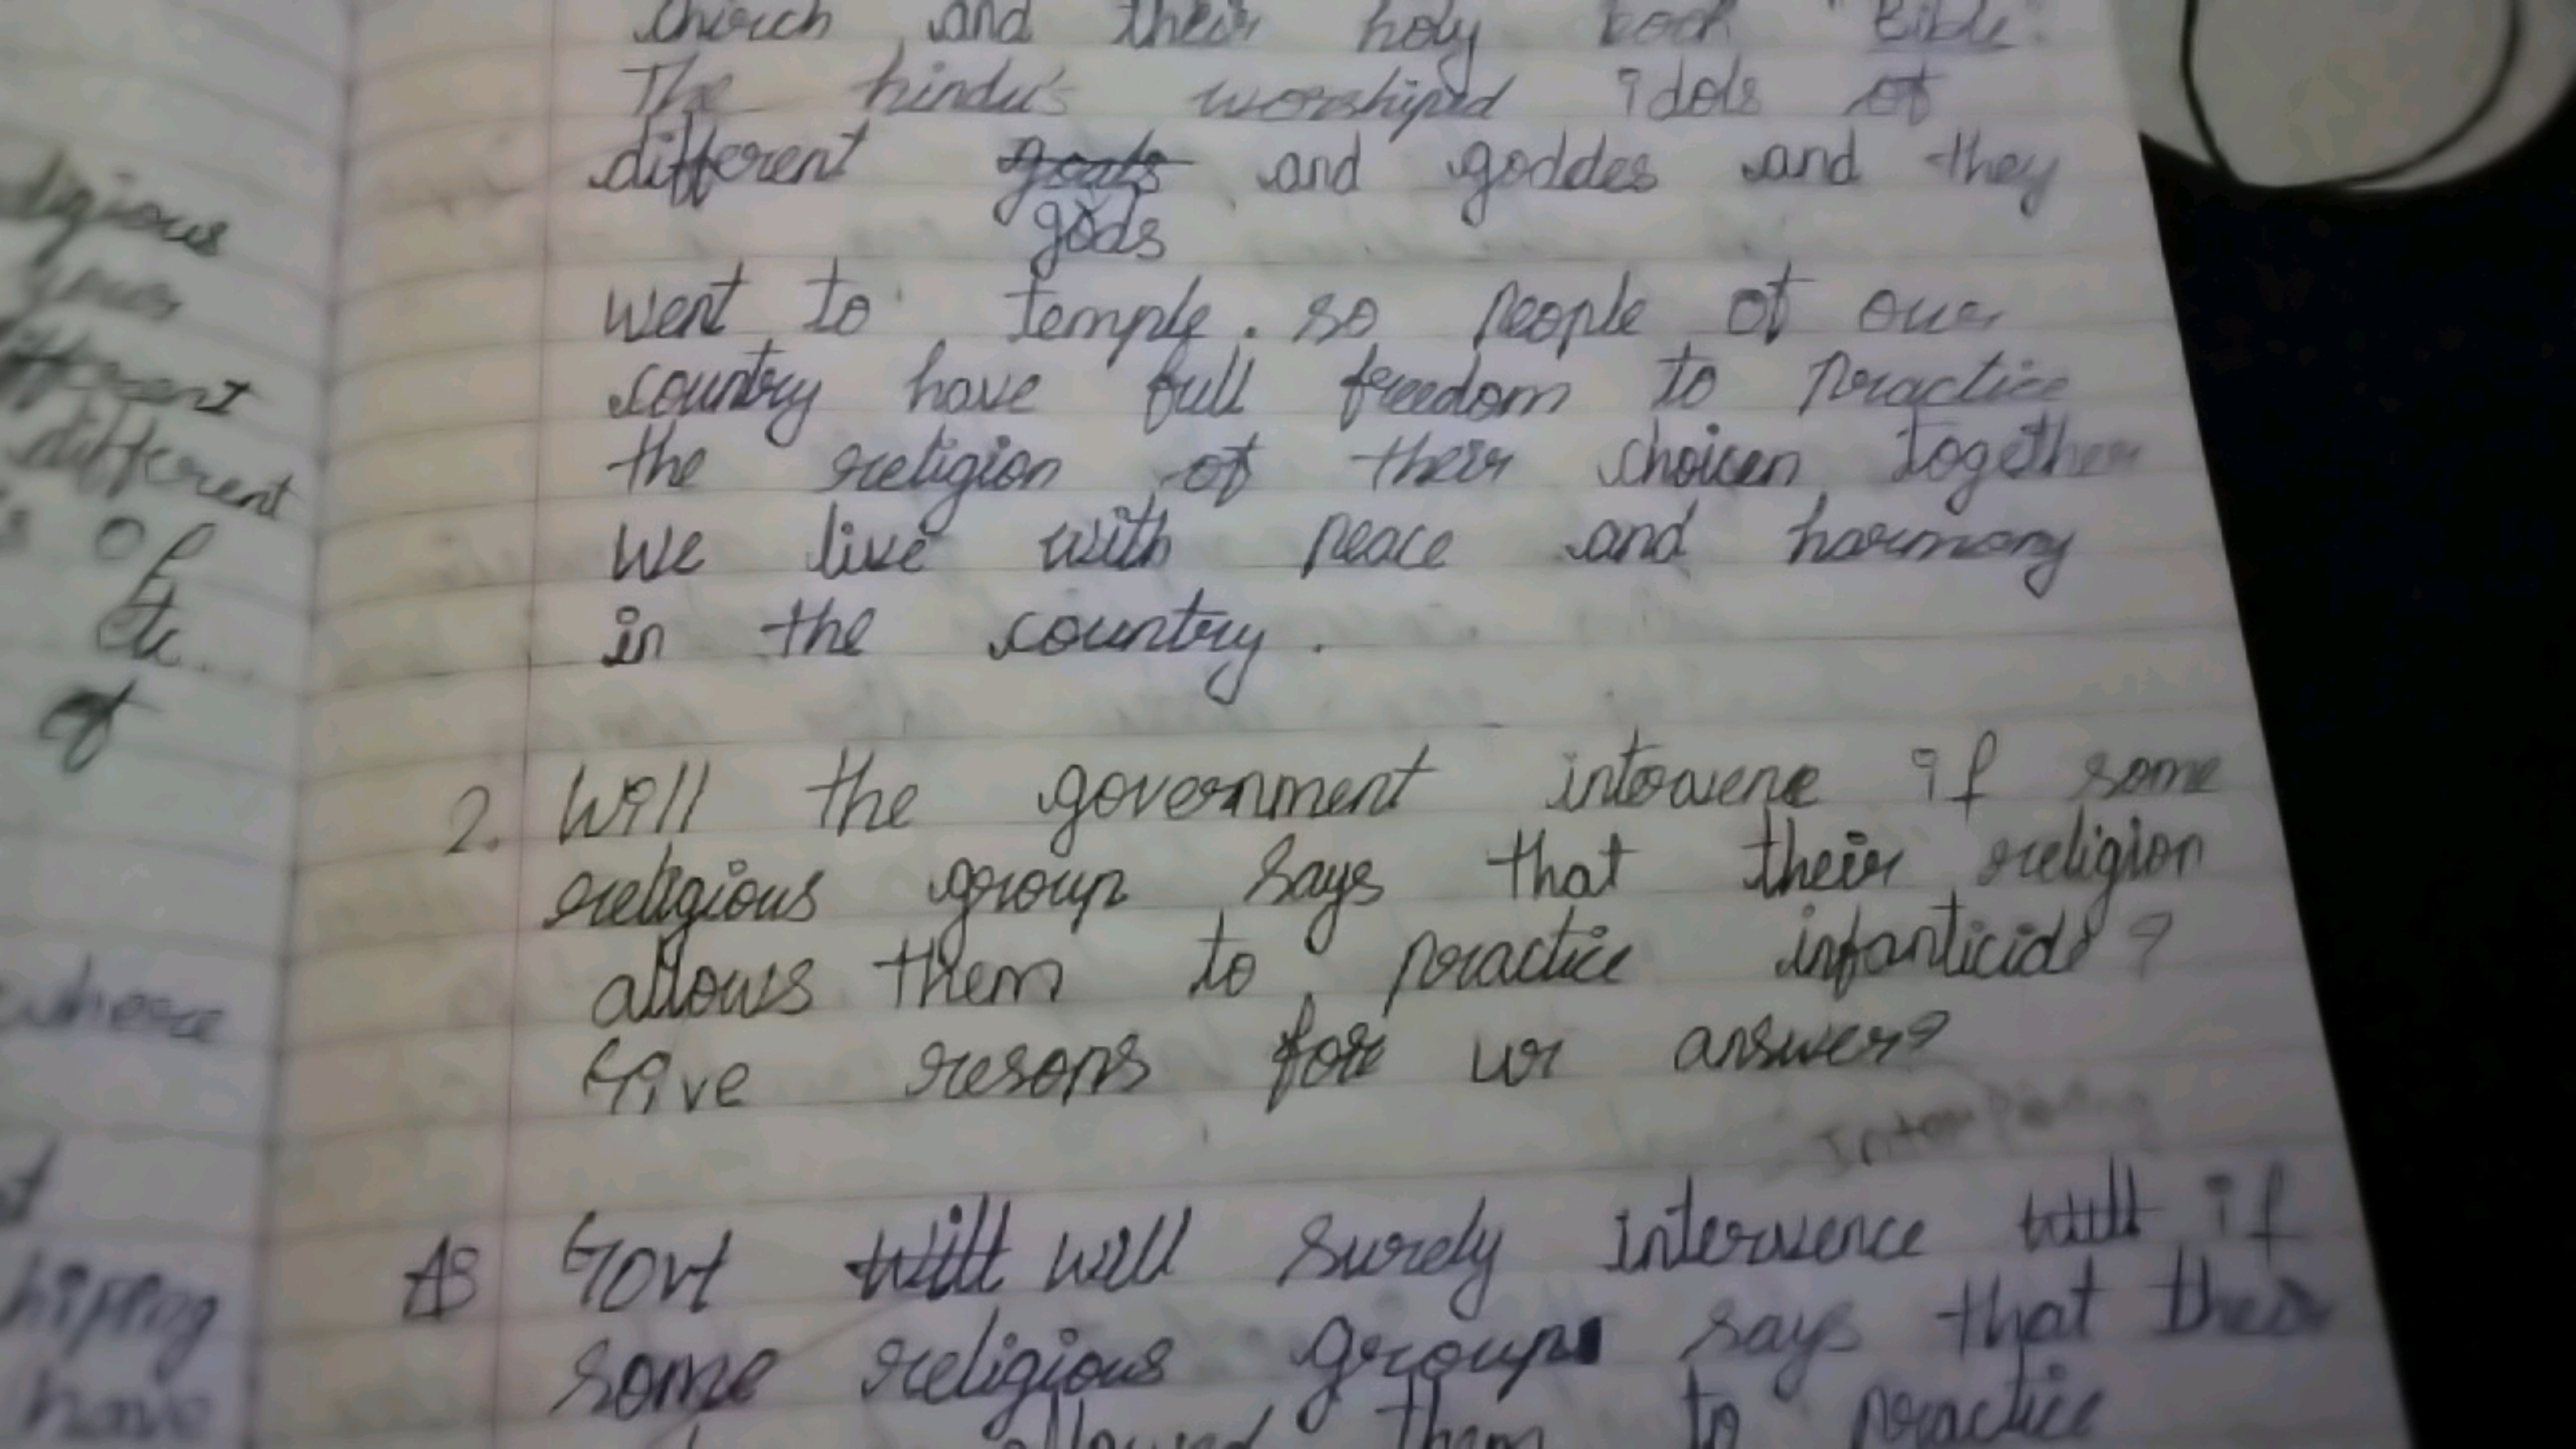 church and their holy book "Bible".
The hindu's worshiped idols of
different goats and goddes and they
gods
went to temple. so people of our
country have full freedom to practice
the religion of their choicen together
we live with peace and harmony
in the country.
2. Will the government intervene if some
religious group says that their religion
allows them to practice infanticide?
Give resons for ur answer?
As Govt will will surely intervence will if
some religious group says that their
allowed them to practice
ligious
different
different
of
etc.
of
where
hiping
have